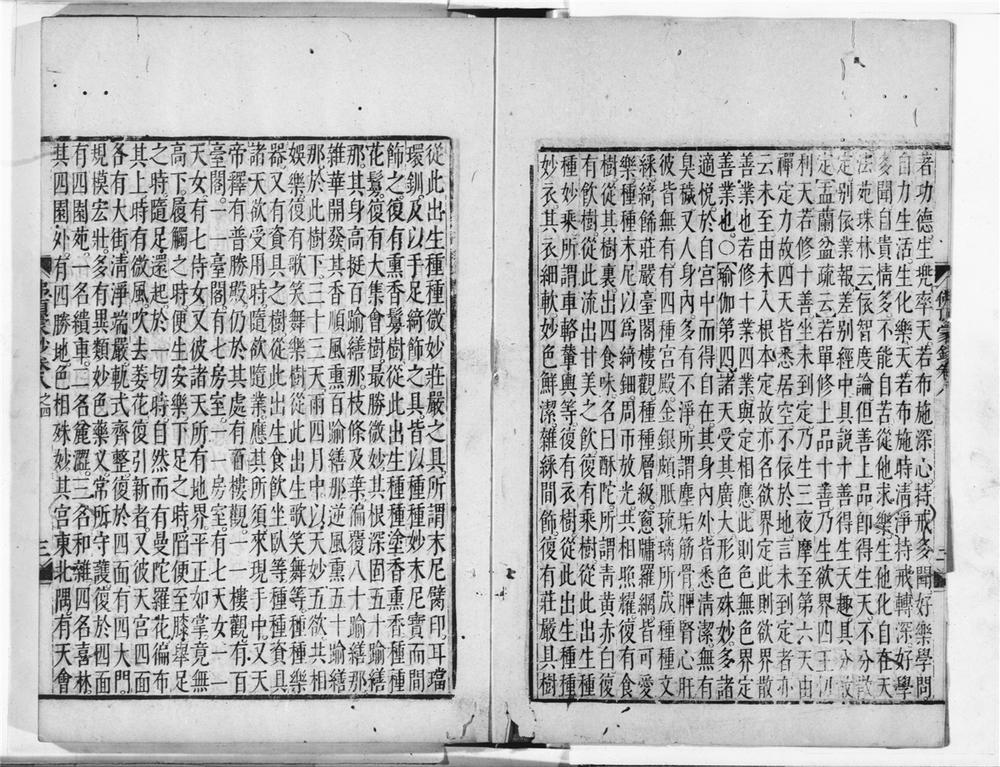 者功德生兜率天若布施深心持戒多聞好樂學問
自力生活生化樂天若布施時清淨持戒轉深好學
多聞自貴情多不能自苦從他求樂生他化自在天
法苑珠林云依智度論但善上品即得生天不分散
定別依業報差別經中具說十善得生天趣具分散
定盂蘭盆疏云若單修上品十善乃生欲界四王忉
利天若修十善坐未到定乃生三夜摩至第六天由
禪定力故四天皆悉居空不依於地言未到定者亦
云未至由未入根本定故亦名欲界定此則欲界散
善業也若修十業四業與定相應此則色無色界定
善業也〇瑜伽第四諸天受其廣大形色殊妙多諸
適悅於自宮中而得自在其身內外皆悉清潔無有
臭穢又人身內多有不淨所謂塵垢筋骨脾腎心肝
彼皆無有四種宮殿金銀頗胝琉璃所成種種文
綵綺飾莊嚴臺閣樓觀種種層級窻牖羅網皆可愛
樂種種末尼以爲綺鈿周帀放光共相照耀復有食
樹從其樹裏出四食味名曰酥陀所謂青黃赤白復
有飲樹從此流出甘美之飲復有乘樹從此出生種
種妙乘所謂車輅輦輿等復有衣樹從此出生種種
妙衣其衣細軟妙色鮮潔雜綵間飾復有莊嚴具樹
從此出生種種微妙莊嚴之具所謂末尼臂印耳璫
環釧及以手足綺飾之具皆以種種妙末尼寶而間
飾之復有熏香鬘樹從此出生種種塗香熏香種種
花鬘復有大集會樹最勝微妙其根深固五十踰繕
那其身高挺百踰繕那枝條及葉徧覆八十踰繕那
雜華開發其香順風熏百踰繕那逆風熏五十踰繕
那於此樹下三十三天雨四月中以天妙五欲共相
娛樂復有歌笑舞樂樹從此出生歌笑舞等種種樂
器又有資具之樹從此出生食飲坐臥等種種資具
諸天欲受用時隨欲隨業應其所須來現手中又天
帝釋有普勝殿仍於其處有百樓觀一一樓觀有百
臺閣一一臺閣有七房室一一房室有七天女一一
天女有七侍女又彼諸天所有地界平正如掌竟無
高下履觸之時便生安樂下足之時陷便至膝舉足
之時隨足還起於一切時自然而有曼陀羅花徧布
其上時有微風吹去萎花復引新者又彼天宮四面
各有大街清淨端嚴軌式齊整復於四面有四大門
規模宏壯多有異類妙色藥叉常所守護復於四面
有四園苑一名繢車二名麄澀三名和雜四名喜林
其四園外有四勝地色相殊妙其宮東北隅有天會